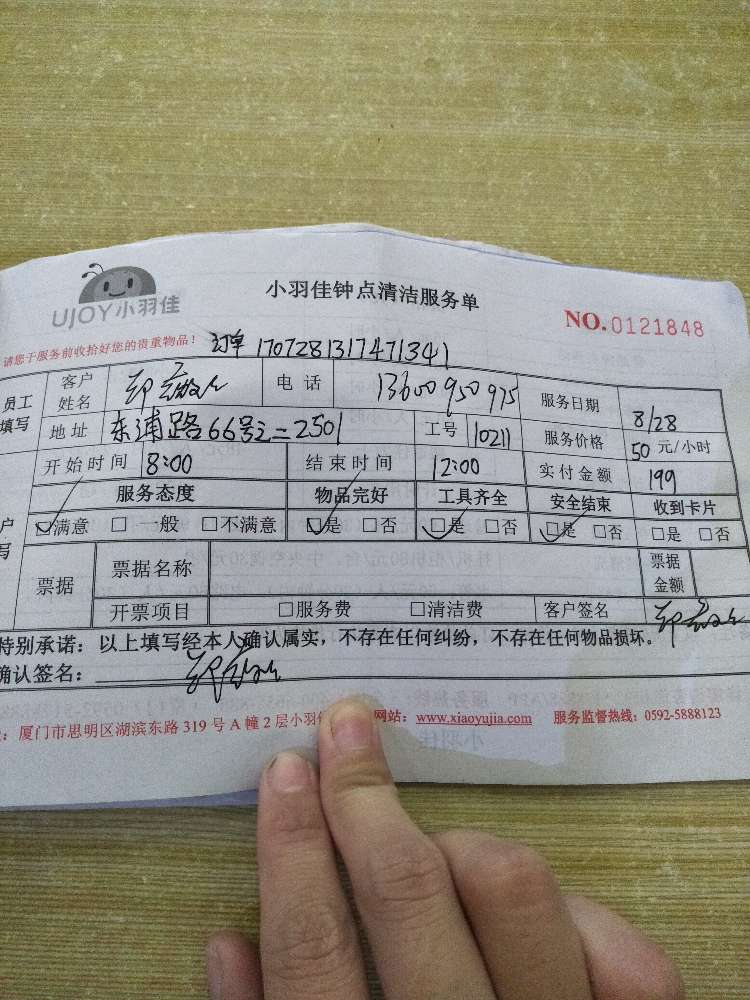 UJOY小羽佳
小羽佳钟点清洁服务单
NO.0121848
请您于服务前收拾好您的贵重物品!
订单 1707281317471341
员工填写 客户姓名 电话 13600950975 服务日期 8/28
地址 东浦路66号之二2501 工号 10211 服务价格 50 元/小时
开始时间 8:00 结束时间 12:00 实付金额 199
服务态度 物品完好 工具齐全 安全结束 收到卡片
户写 ☑满意 □一般 □不满意 ☑是 □否 ☑是 □否 ☑是 □否 □是 □否
票据 票据名称 票据金额
开票项目 □服务费 □清洁费 客户签名
特别承诺:以上填写经本人确认属实,不存在任何纠纷,不存在任何物品损坏。
确认签名:
:厦门市思明区湖滨东路 319 号 A 幢 2 层小羽佳 网站:www.xiaoyujia.com 服务监督热线:0592-5888123